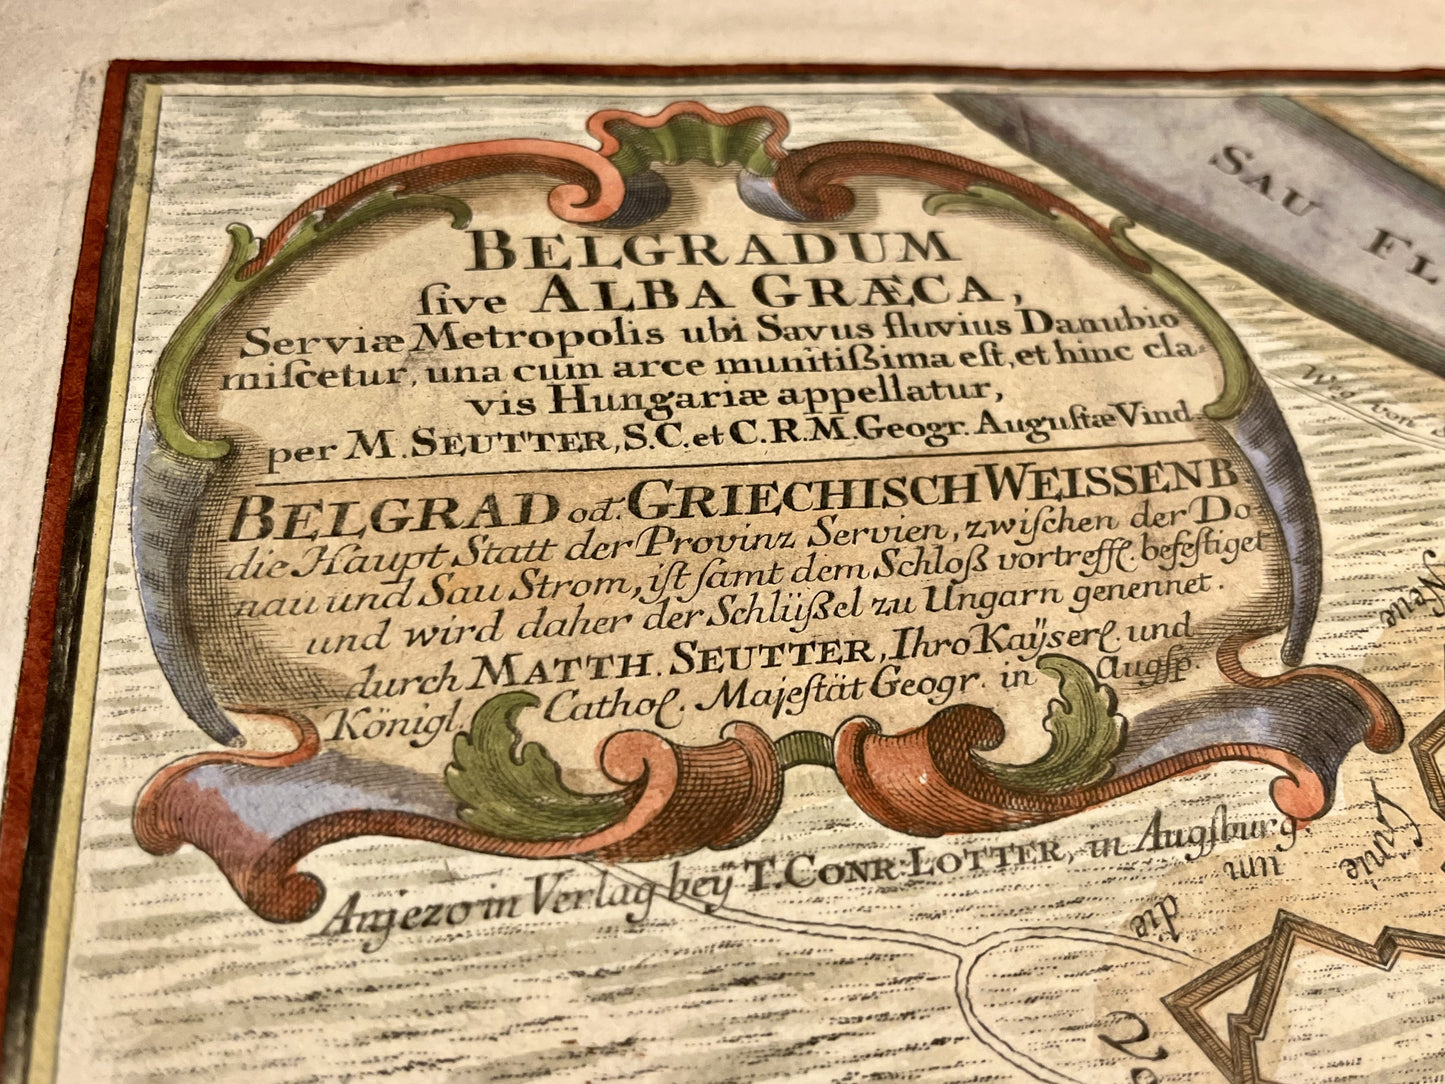 BELGRADUM
ſive ALBA GRÆCA,
Serviæ Metropolis ubi Savus fluvius Danubio
miſcetur, una cum arce munitißima eſt, et hinc cla-
vis Hungariæ appellatur,
per M. SEUTTER, S.C. et C.R.M. Geogr. Auguſtæ Vind.
BELGRAD od. GRIECHISCH WEISSENB
die Haupt Statt der Provinz Servien, zwiſchen der Do-
nau und Sau Strom, iſt ſamt dem Schloß vortreffl. befeſtiget
und wird daher der Schlüßel zu Ungarn genennet.
durch MATTH. SEUTTER, Ihro Kaÿserl. und
Königl. Cathol. Majeſtät Geogr. in Augſp.
Anjezo in Verlag beÿ T. CONR. LOTTER, in Augſburg.
SAU FL
Weg von
Neue
Linie
um
die